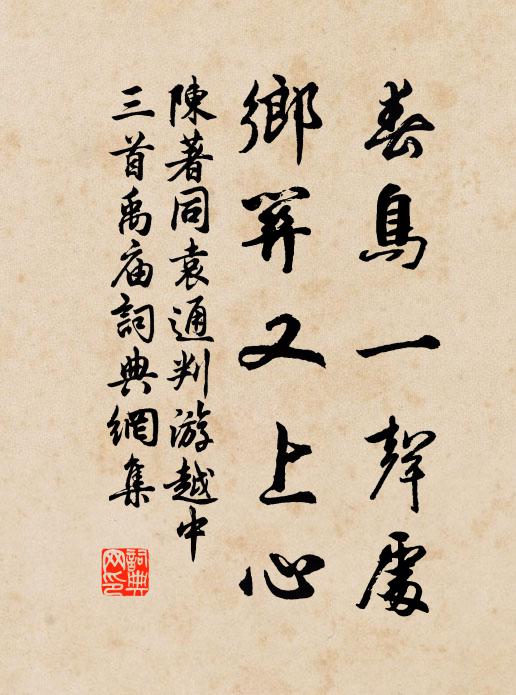 春鳥一聲處
鄉筭又上心
陳著同袁通判游越中
三首禹庙詞典網集
詞典网印